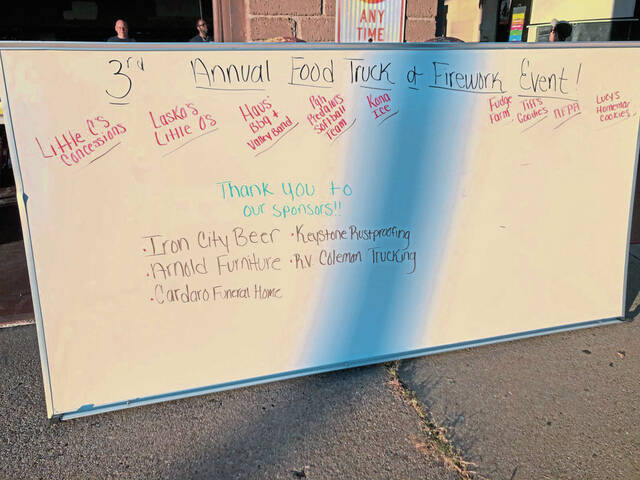 ANY
TIME
3rd Annual Food Truck & Firework Event!
Little C's
Concessions
Lasko's
Little O's
Haus'
BBQ +
Valley Band
Pgh
Predators
Softball
Team
Kona
Ice
Fudge
Farm
Tiff's
Goodies
NFPA
Lucy's
Homemade
Cookies
Thank you to
our sponsors!!
· Iron City Beer
· Arnold Furniture
· Cardaro Funeral Home
· Keystone Rustproofing
· RV Coleman Trucking